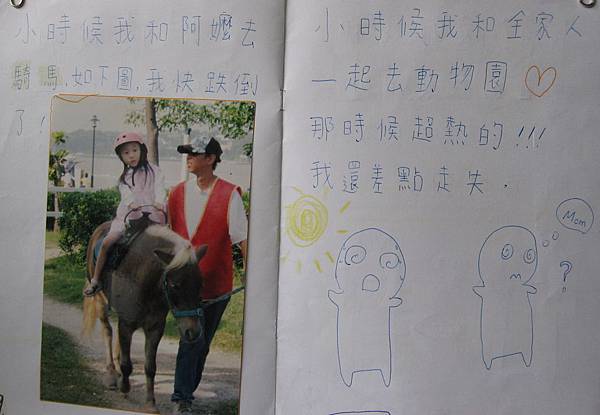 小時候我和阿嬤去
騎馬,如下圖,我快跌倒
了!
小時候我和全家人
一起去動物園♡
那時候超熱的!!!
我還差點走失.
Mom
?